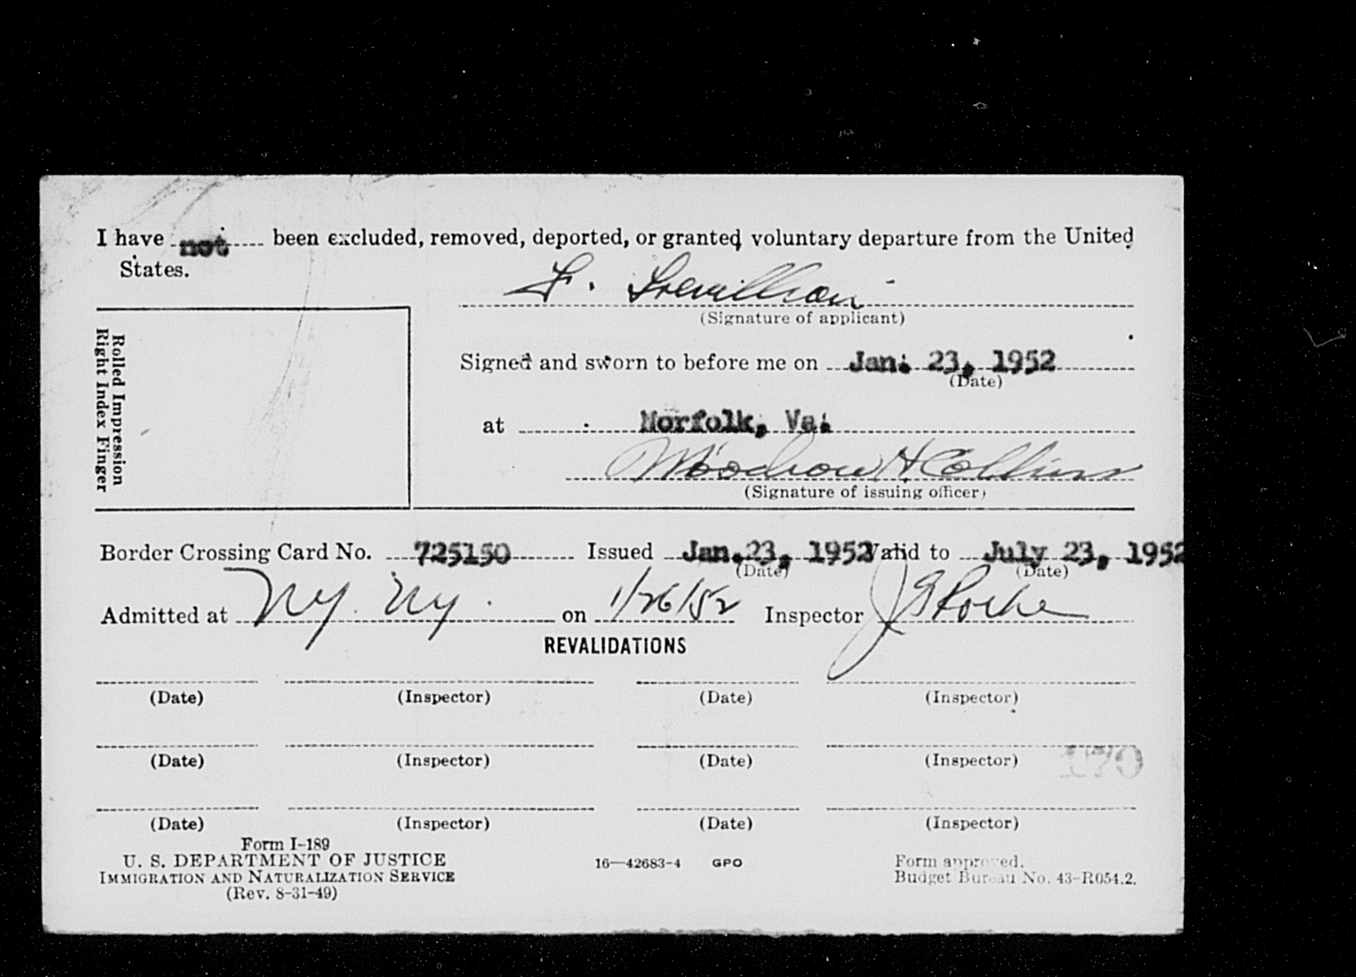 I have not been excluded, removed, deported, or granted voluntary departure from the United
States.
F. Trevillian
(Signature of applicant)
Rolled Impression
Right Index Finger
Signed and sworn to before me on Jan. 23, 1952
(Date)
at Norfolk, Va.
Woodrow H Collins
(Signature of issuing officer)
Border Crossing Card No. 725150 Issued Jan.23, 1952 Valid to July 23, 1952
(Date) (Date)
Admitted at NY. NY. on 1/26/52 Inspector
REVALIDATIONS
(Date) (Inspector) (Date) (Inspector)
(Date) (Inspector) (Date) (Inspector)
(Date) (Inspector) (Date) (Inspector)
Form I-189
U. S. DEPARTMENT OF JUSTICE
IMMIGRATION AND NATURALIZATION SERVICE
(Rev. 8-31-49)
16—42683-4 GPO
Form approved.
Budget Bureau No. 43-R054.2.